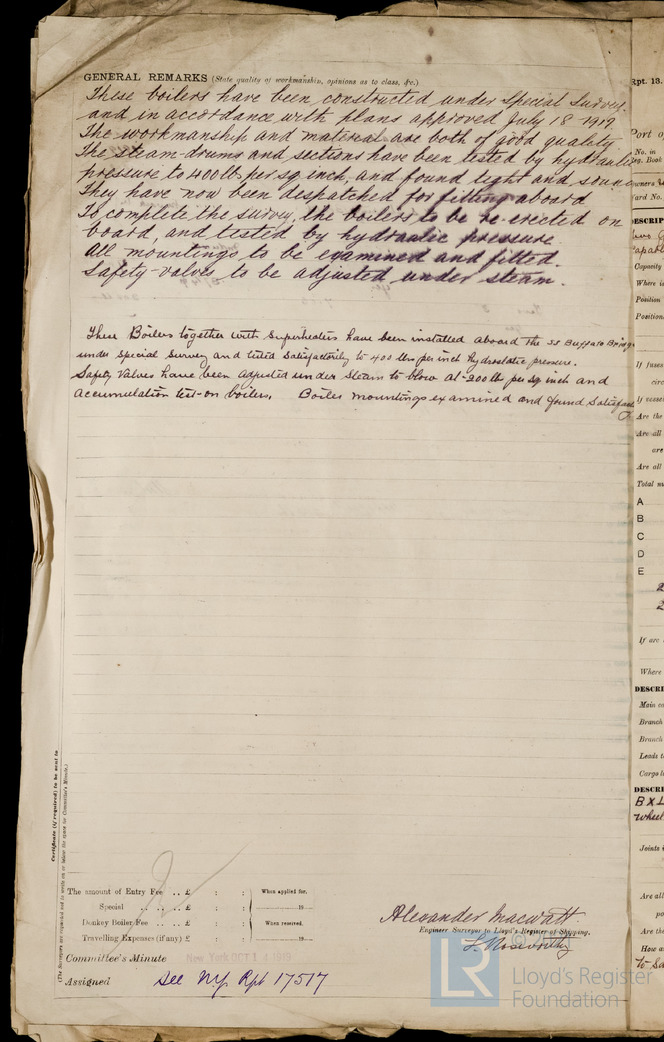 GENERAL REMARKS (State quality of workmanship, opinions as to class, &c.)
These boilers have been constructed under Special Survey
and in accordance with plans approved July 18 1917.
The workmanship and material are both of good quality
The steam-drums and sections have been tested by hydraulic
pressure to 400 lb per sq. inch, and found tight and sound
They have now been despatched for fitting aboard
To complete the survey, the boilers to be re-erected on
board, and tested by hydraulic pressure
All mountings to be examined and fitted.
Safety-valves to be adjusted under steam.
These Boilers together with Superheaters have been installed aboard the SS Buffalo Bridge
under Special Survey and tested Satisfactorily to 400 lbs per inch hydrostatic pressure.
Safety Valves have been adjusted under Steam to blow at 200 lb per sq inch and
accumulation test on boilers. Boiler mountings examined and found
Certificate (if required) to be sent to
(The Surveyors are requested not to write on or below the space for Committee's Minute.)
The amount of Entry Fee .. .. £ : :
Special .. .. .. £ : :
Donkey Boiler Fee .. .. £ : :
Travelling Expenses (if any) £ : :
When applied for,
19
When received,
19
Alexander Macwatt
Engineer Surveyor to Lloyd's Register of Shipping.
Committee's Minute New York OCT 14 1919
Assigned See N.Y. Rpt 17517
LR
Lloyd's Register
Foundation
Rpt. 13.
Port of
No. in
Reg. Book
Owners
Yard No.
DESCRIP
Capacity
Where is
Position
Position
If fuses
circ
If vessel
Are the
Are all
are
Are all
Total nu
A
B
C
D
E
2
2
If are
Where
DESCRI
Main ca
Branch
Branch
Leads to
Cargo l
DESCRI
BXL
wheel
Joints i
Are all
po
Are the
How a